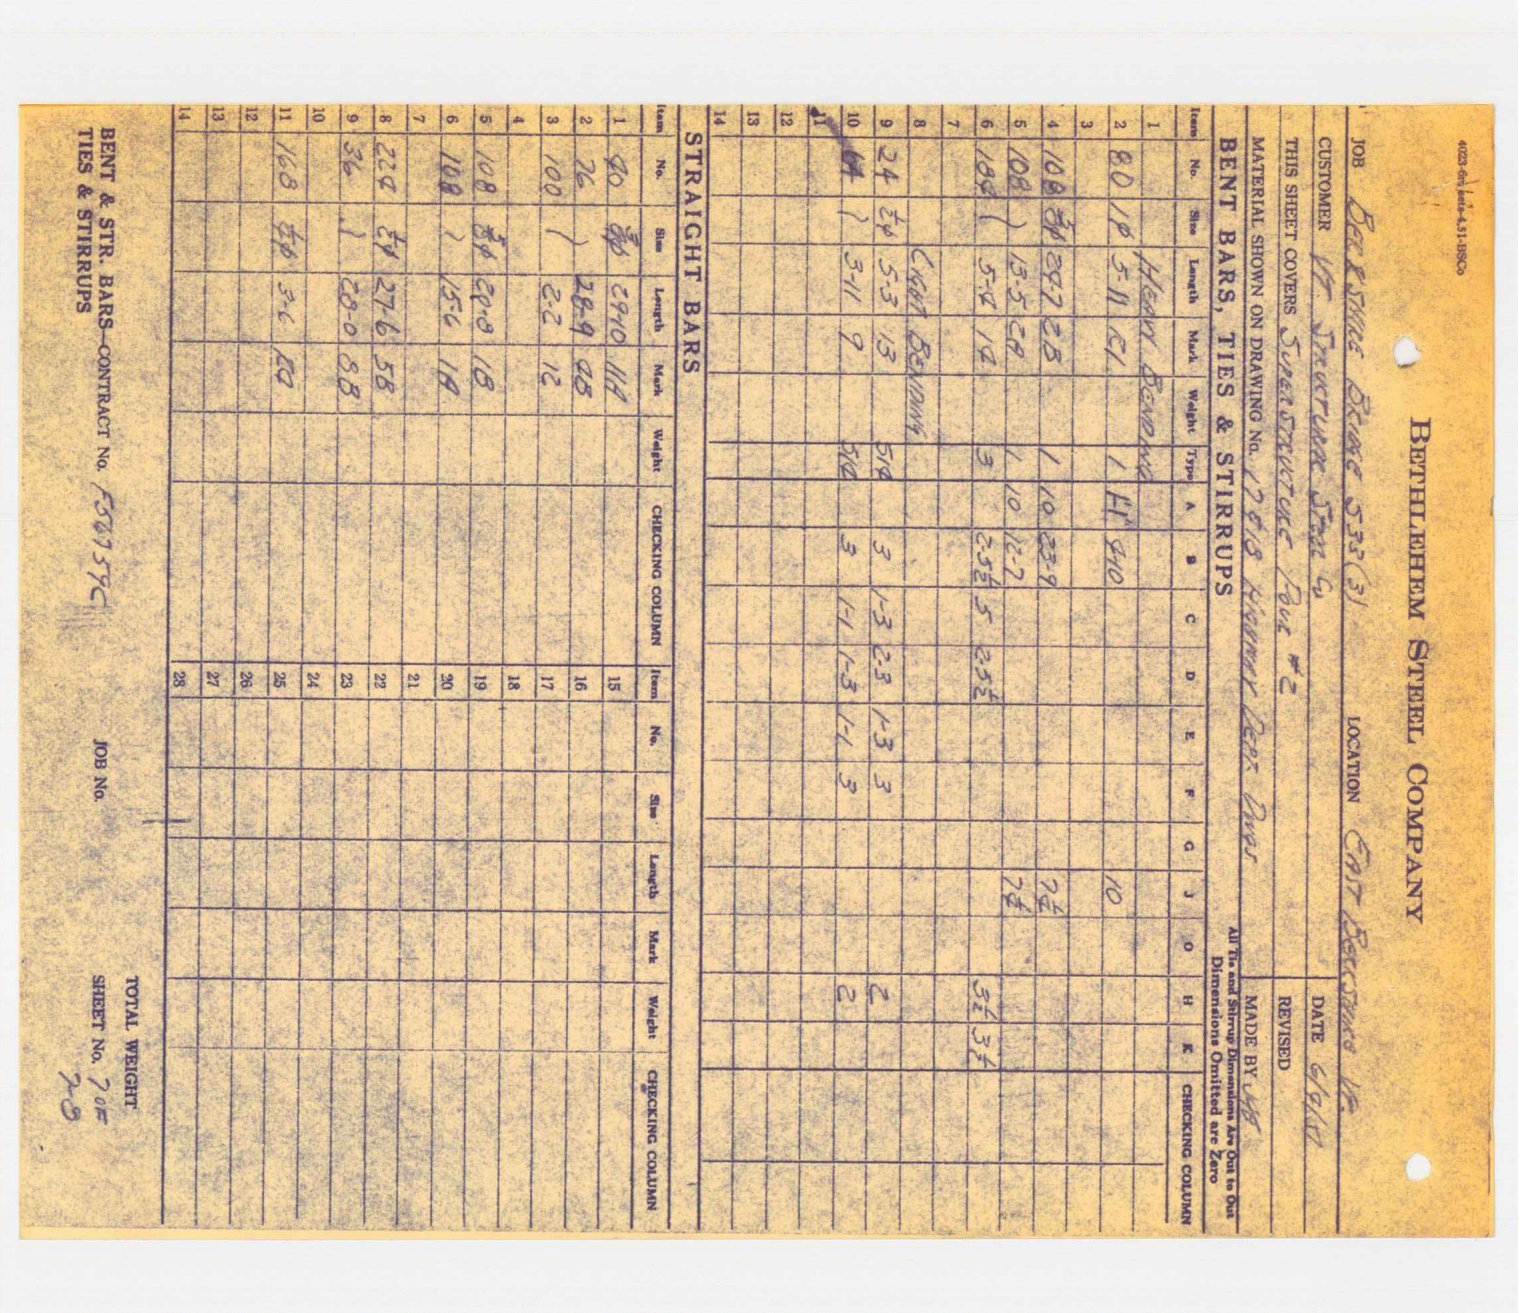 4023-6m sets-4.51-BSCo
BETHLEHEM STEEL COMPANY
JOB BERKSHIRE BRIDGE S33(3) LOCATION EAST BERKSHIRE VT.
CUSTOMER VT. STRUCTURAL STEEL Co DATE
THIS SHEET COVERS SUPERSTRUCTURE POUR #2 REVISED
MATERIAL SHOWN ON DRAWING No. HIGHWAY DEPT. DWGS MADE BY
BENT BARS, TIES & STIRRUPS All Tie and Stirrup Dimensions Are Out to Out
Dimensions Omitted are Zero
Item No. Size Length Mark Weight Type A B C D E F G J O H K CHECKING COLUMN
1 HEAVY BENDING
2 80 1φ 5-11 1 4-10 10
3
4 108 24-7 2B 1 10 23-9 7½
5 108 13-5 2A 1 10 12-7 7½
6 184 5-4 14 3 2-5½ 5 2-5½ 3½ 3½
7
8 LIGHT BENDING
9 24 ½φ 5-3 13 3 1-3 2-3 1-3 3 2
10 3-11 9 3 1-1 1-3 1-1 3 2
11
12
13
14
STRAIGHT BARS
Item No. Size Length Mark Weight CHECKING COLUMN Item No. Size Length Mark Weight CHECKING COLUMN
1 40 29-10 15
2 76 28-9 16
3 100 2-2 12 17
4 18
5 108 20-8 18 19
6 108 15-6 20
7 21
8 224 ½φ 27-6 58 22
9 36 28-0 23
10 24
11 168 3-6 25
12 26
13 27
14 28
BENT & STR. BARS—CONTRACT No. JOB No. TOTAL WEIGHT
TIES & STIRRUPS SHEET No. 7 OF
7-8